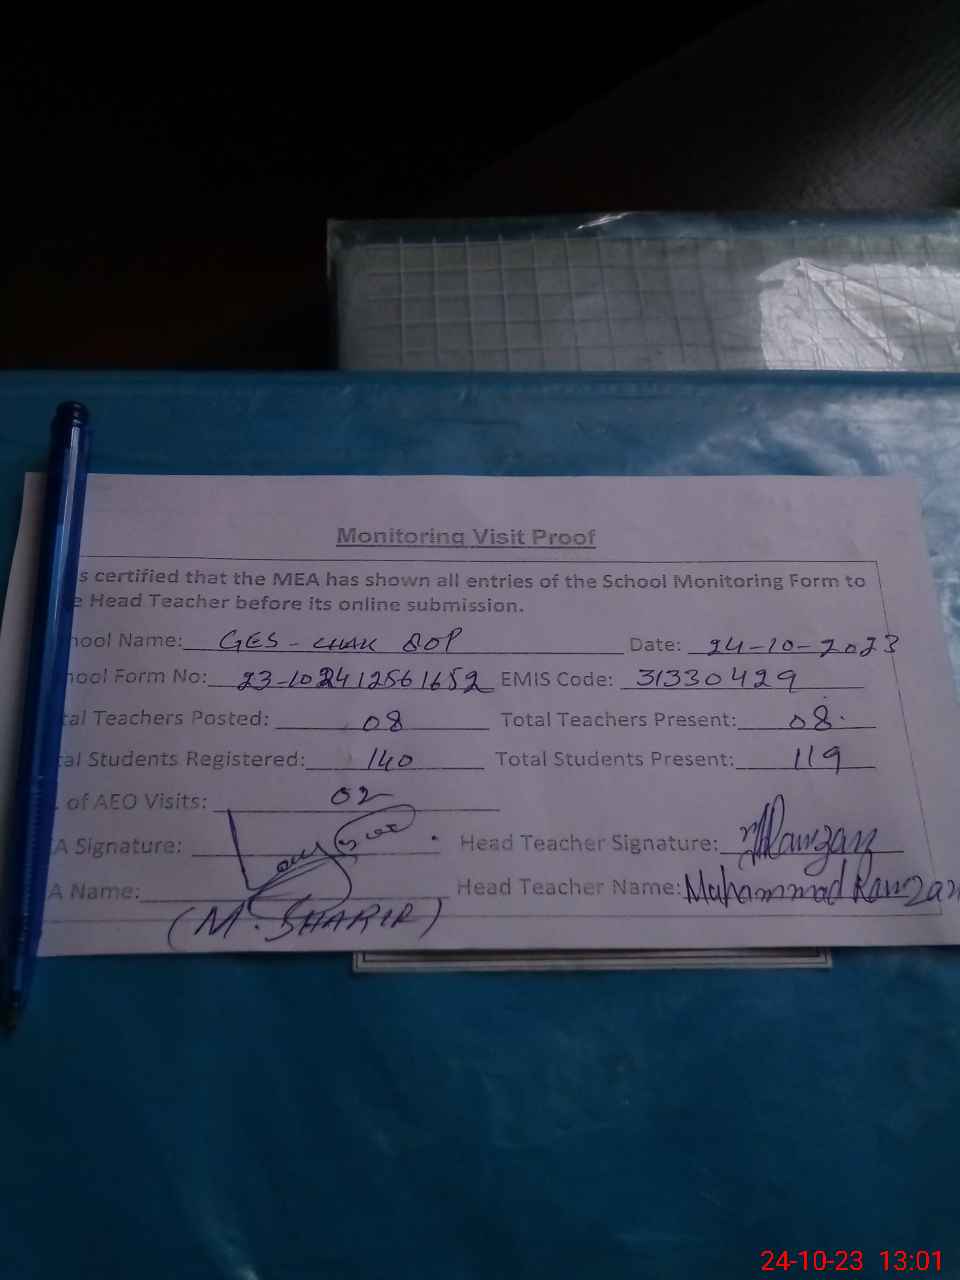 Monitoring Visit Proof
s certified that the MEA has shown all entries of the School Monitoring Form to
e Head Teacher before its online submission.
hool Name: GES - CHAK Date: 24-10-2023
hool Form No: 23-102412561652 EMIS Code: 31330429
tal Teachers Posted: 08 Total Teachers Present: 08.
tal Students Registered: 140 Total Students Present: 119
. of AEO Visits: 02
A Signature: Head Teacher Signature: MRamzan
A Name: Head Teacher Name: Muhammad Ramzan
(M. SHARIF)
24-10-23 13:01